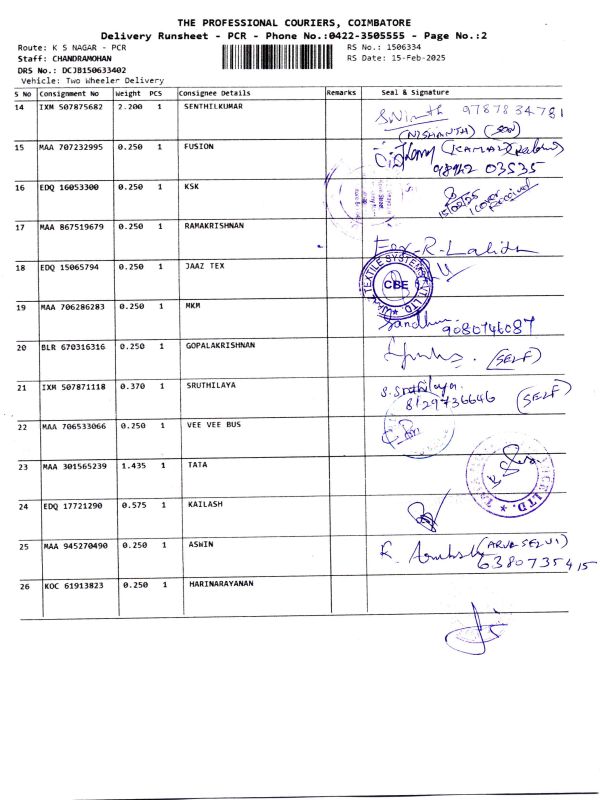 THE PROFESSIONAL COURIERS, COIMBATORE
Delivery Runsheet - PCR - Phone No.:0422-3505555 - Page No.:2
Route: K S NAGAR - PCR
RS No.: 1506334
Staff: CHANDRAMOHAN
RS Date: 15-Feb-2025
DRS No.: DCJB150633402
Vehicle: Two Wheeler Delivery
S No Consignment No Weight PCS Consignee Details Remarks Seal & Signature
14 IXM 507875682 2.200 1 SENTHILKUMAR 9787834781
(NISHANTH) (SON)
15 MAA 707232995 0.250 1 FUSION
98942 03535
16 EDQ 16053300 0.250 1 KSK
1 cover Received
17 MAA 867519679 0.250 1 RAMAKRISHNAN
For-R-Lalitha
18 EDQ 15065794 0.250 1 JAAZ TEX
TEXTILE SYSTEMS PVT. LTD. CBE
19 MAA 706286283 0.250 1 MKM
9080746087
20 BLR 670316316 0.250 1 GOPALAKRISHNAN
(SELF)
21 IXM 507871118 0.370 1 SRUTHILAYA S. Sruthilaya.
8129736646 (SELF)
22 MAA 706533066 0.250 1 VEE VEE BUS
23 MAA 301565239 1.435 1 TATA
LTD.
24 EDQ 17721290 0.575 1 KAILASH
25 MAA 945270490 0.250 1 ASWIN (ARUL SELVI)
6380735415
26 KOC 61913823 0.250 1 HARINARAYANAN